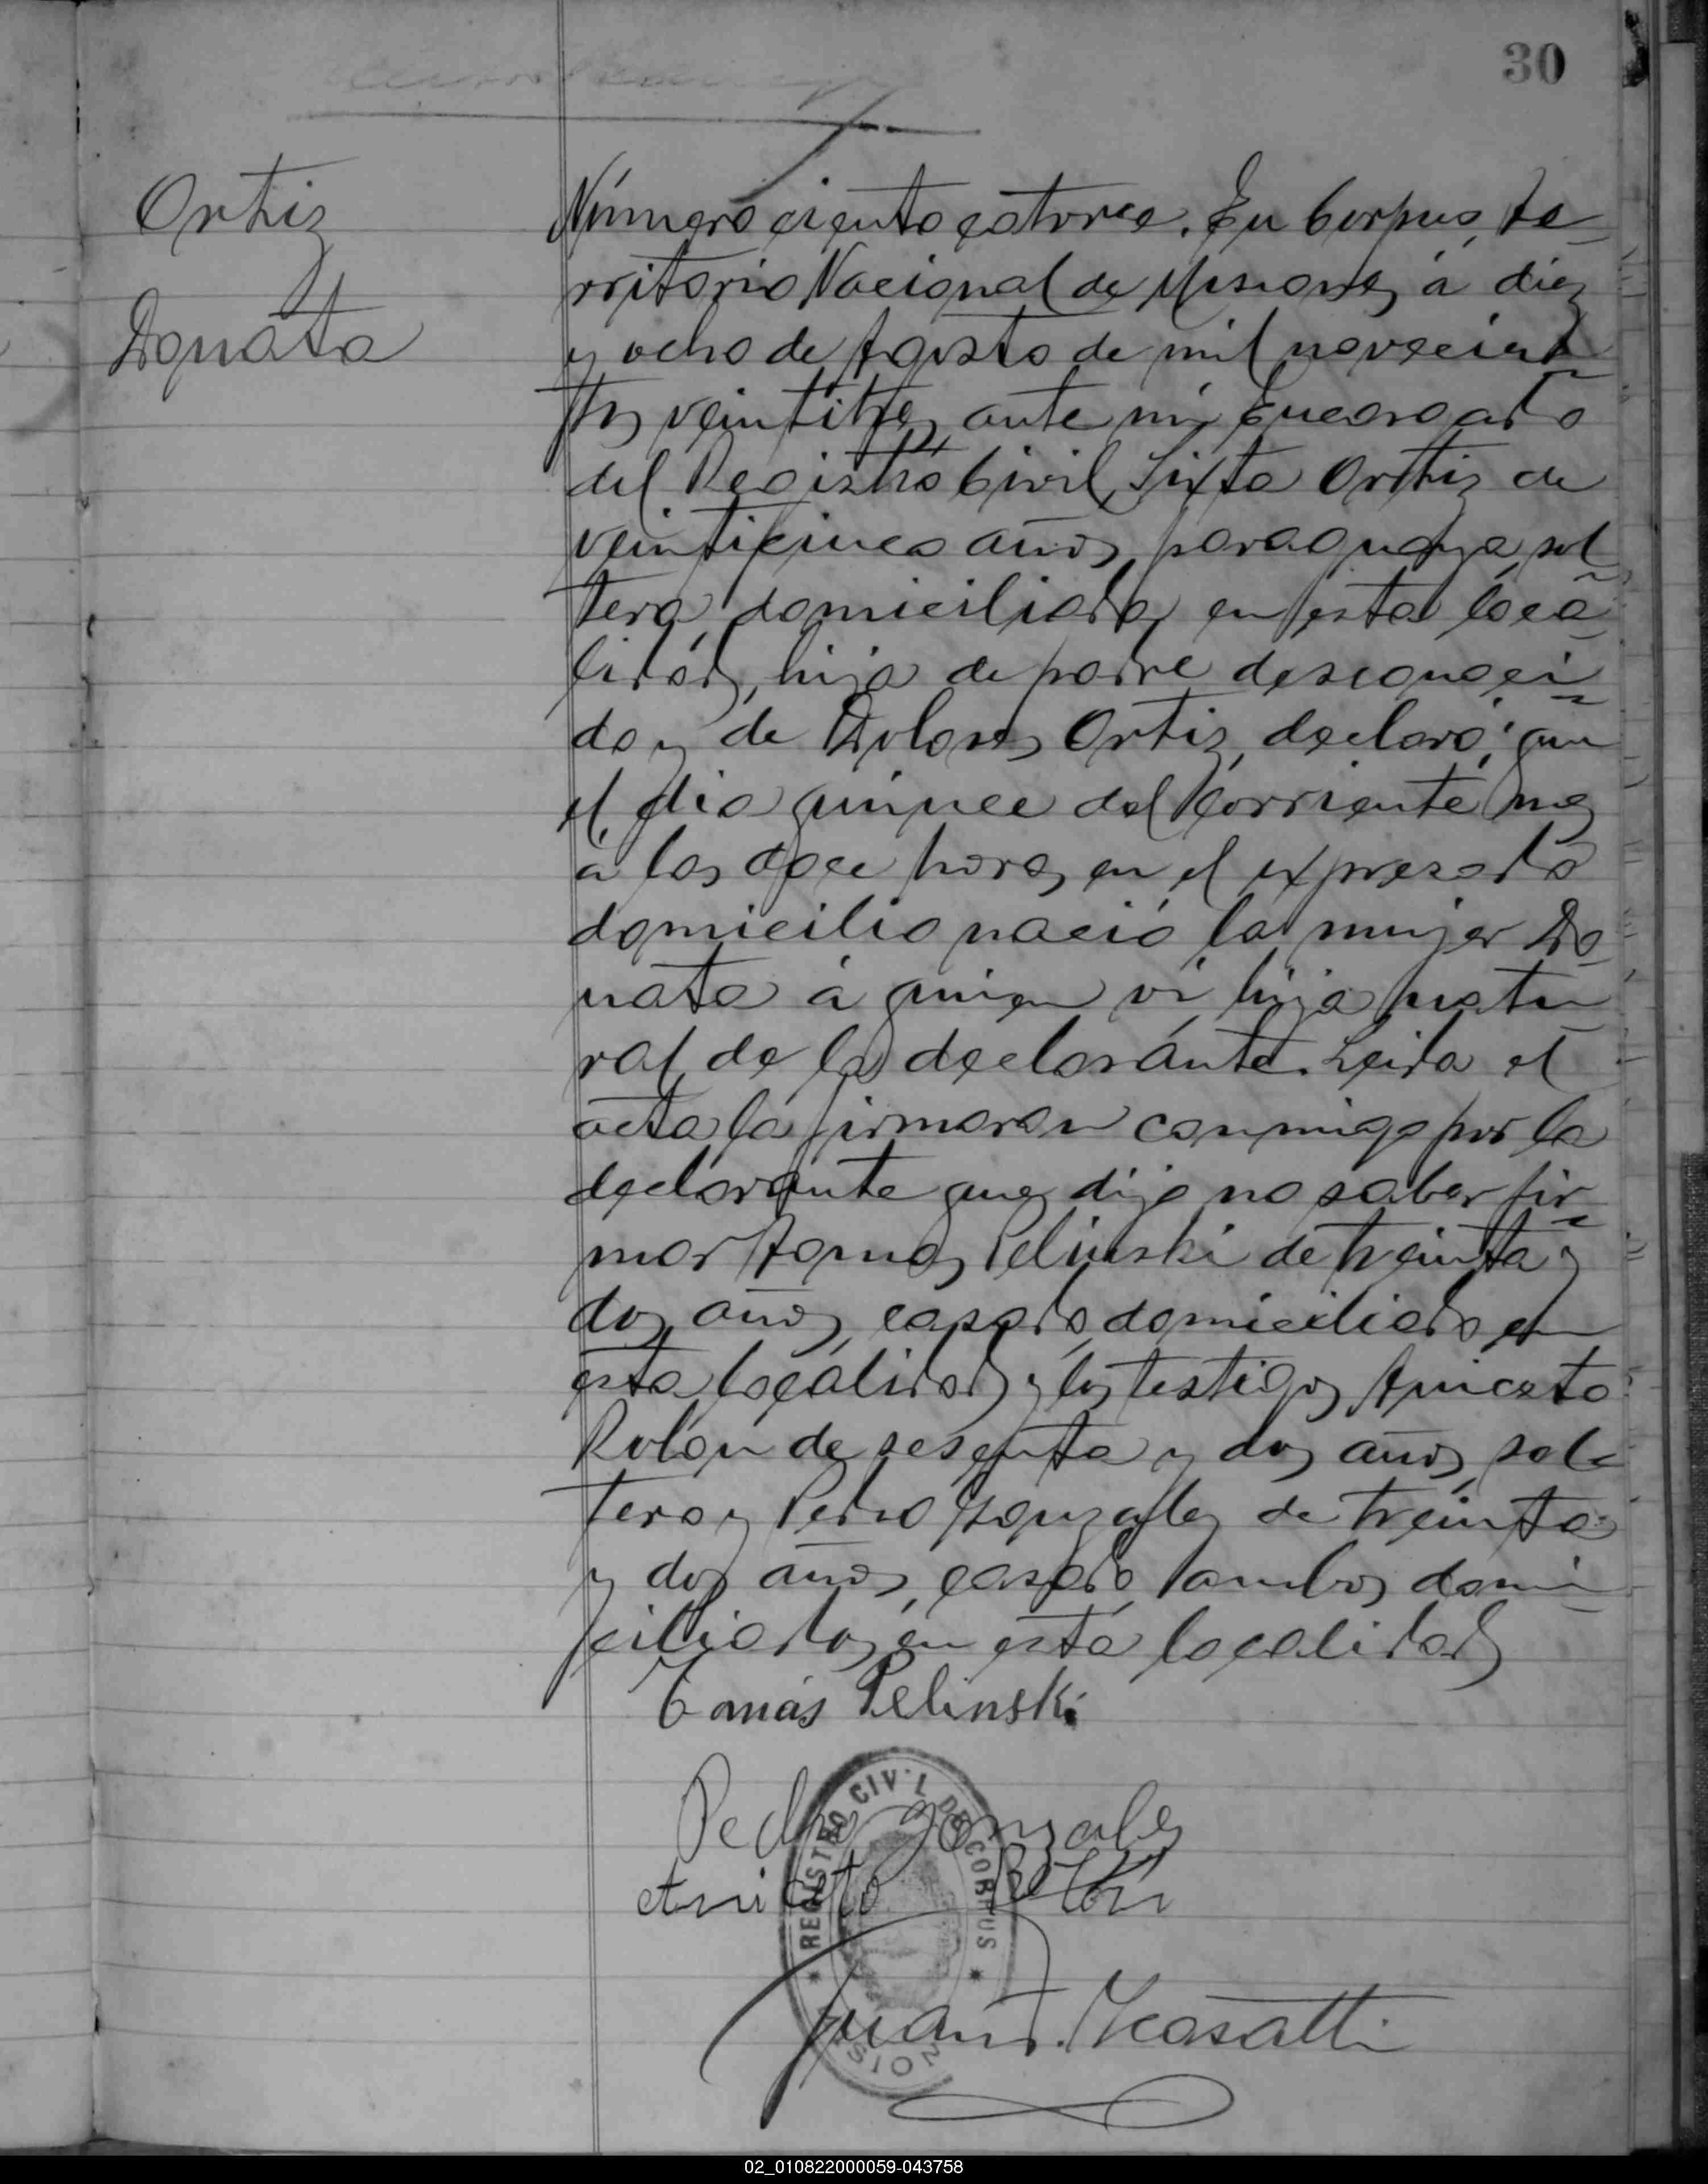 30
Ortiz
Donata
Número ciento catorce. En Corpus, te-
rritorio Nacional de Misiones, á diez
y ocho de Agosto de mil novecien-
tos veintitres, ante mi Encargado
del Registro Civil, Sixta Ortiz de
veinticinco años, paraguaya, sol-
tera, domiciliada en esta loca-
lidad, hija de padre desconoci-
do y de Dolores Ortiz, declaró: que
el dia quince del corriente mes
á las doce horas, en el expresado
domicilio nació la mujer Do-
nata á quien vi, hija natu-
ral de la declarante. Leida el
acta la firmaron conmigo por la
declarante que dijo no saber fir-
mar Tomas Pelinski de treinta y
dos años, casado, domiciliado en
esta localidad y los testigos Aniceto
Rolon de sesenta y dos años, sol-
tero y Pedro Gonzales de treinta
y dos años, casado, ambos domi-
ciliados en esta localidad
Tomás Pelinski
Pedro Gonzales
Aniceto Rolón
REGISTRO CIVIL DE CORPUS
Juan
02_010822000059-043758